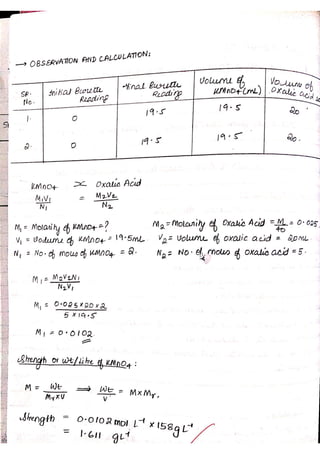 → OBSERVATION AND CALCULATION:
SR. No. Initial Burette Reading Final Burette Reading Volume of KMnO4 (mL) Volume of Oxalic acid
1. 0 19.5 19.5 20
2. 0 19.5 19.5 20.
KMnO4 >< Oxalic Acid
M1V1 / N1 = M2V2 / N2
M1 = Molarity of KMnO4 = ? M2 = Molarity of Oxalic Acid = M/40 = 0.025
V1 = Volume of KMnO4 = 19.5mL V2 = Volume of oxalic acid = 20mL
N1 = No. of moles of KMnO4 = 2. N2 = No. of moles of oxalic acid = 5.
M1 = M2V2N1 / N2V1
M1 = 0.025 x 20 x 2 / 5 x 19.5
M1 = 0.0102
Strength or wt/litre of KMnO4:
M = Wt / Mr x V ⟹ Wt / V = M x Mr.
Strength = 0.0102 mol L-1 x 158 g L-1
= 1.611 g L-1